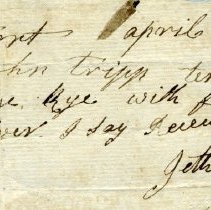 april
ohn Tripp ten
Rye with f
ver I say Recei
Jeth